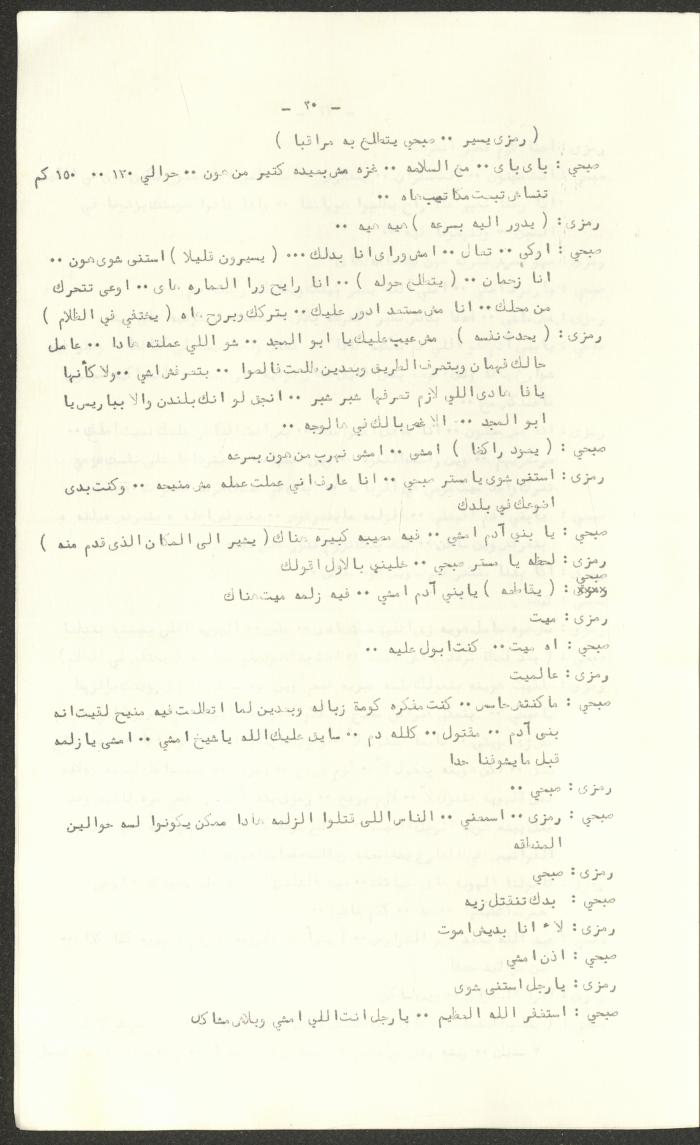 - ٣٠ -
( رمزى يسير ٠٠ صبحي يتطلع به مراقبا )
صبحي : باى باى ٠٠ مع السلامه ٠٠ غزه مش بعيده كتير من هون ٠٠ حوالي ١٣٠ ٠٠ ١٥٠ كم
تنساش تبعت مكاتيب هاه ٠٠
رمزى : ( يدور اليه بسرعه ) هيه هيه ٠٠
صبحي : اوكي ٠٠ تعال ٠٠ امش وراى انا بدلك ٠٠٠ ( يسيرون قليلا ) استنى شوى هون ٠٠
انا زحمان ٠٠ ( يتطلع حوله ) ٠٠ انا رايح ورا العماره هاى ٠٠ اوعى تتحرك
من محلك ٠٠ انا مش مستعد ادور عليك ٠٠ بتركك وبروح هاه ( يختفي في الظلام )
رمزى : ( يحدث نفسه ) مش عيب عليك يا ابو المجد ٠٠ شو اللي عملته هادا ٠٠ عامل
حالك فهمان وبتعرف الطريق وبعدين طلعت فالصوا ٠٠ بتعرفش اشي ٠٠ ولا كأنها
يافا هادى اللي لازم تعرفها شبر شبر ٠٠ انجق لو انك بلندن والا بباريس يا
ابو المجد ٠٠ الاخص بالك في هالوجه ٠٠
صبحي : ( يعود راكنا ) امشى ٠٠ امشى نهرب من هون بسرعه
رمزى : استنى شوى يا مستر صبحي ٠٠ انا عارف اني عملت عمله مش منيحه ٠٠ وكنت بدى
اضوعك في بلدك
صبحي : يا بني آدم امشي ٠٠ فيه مصيبه كبيره هناك ( يشير الى المكان الذى قدم منه )
رمزى : لحظه يا مستر صبحي ٠٠ خليني بالاول اقولك
صبحي : ( يقاطعه ) يابني آدم امشي ٠٠ فيه زلمه ميت هناك
رمزى : ميت
صبحي : اه ميت ٠٠ كنت ابول عليه ٠٠
رمزى : عالميت
صبحي : ماكنتش حاسس ٠٠ كنت مفكره كومة زباله وبعدين لما اتطلعت فيه منيح لقيت انه
بنى آدم ٠٠ مقتول ٠٠ كلله دم ٠٠ سايق عليك الله ياشيخ امشي ٠٠ امشى يا زلمه
قبل مايشوفنا حدا
رمزى : صبحي ٠٠
صبحي : رمزى ٠٠ اسمعني ٠٠ الناس اللى قتلوا الزلمه هادا ممكن يكونوا لسه حوالين
المنطقه
رمزى : صبحي
صبحي : بدك تنقتل زيه
رمزى : لاء انا بديش اموت
صبحي : اذن امشي
رمزى : يارجل استنى شوى
صبحي : استغفر الله العظيم ٠٠ يارجل انت اللي امشي وبلاش مشاكل